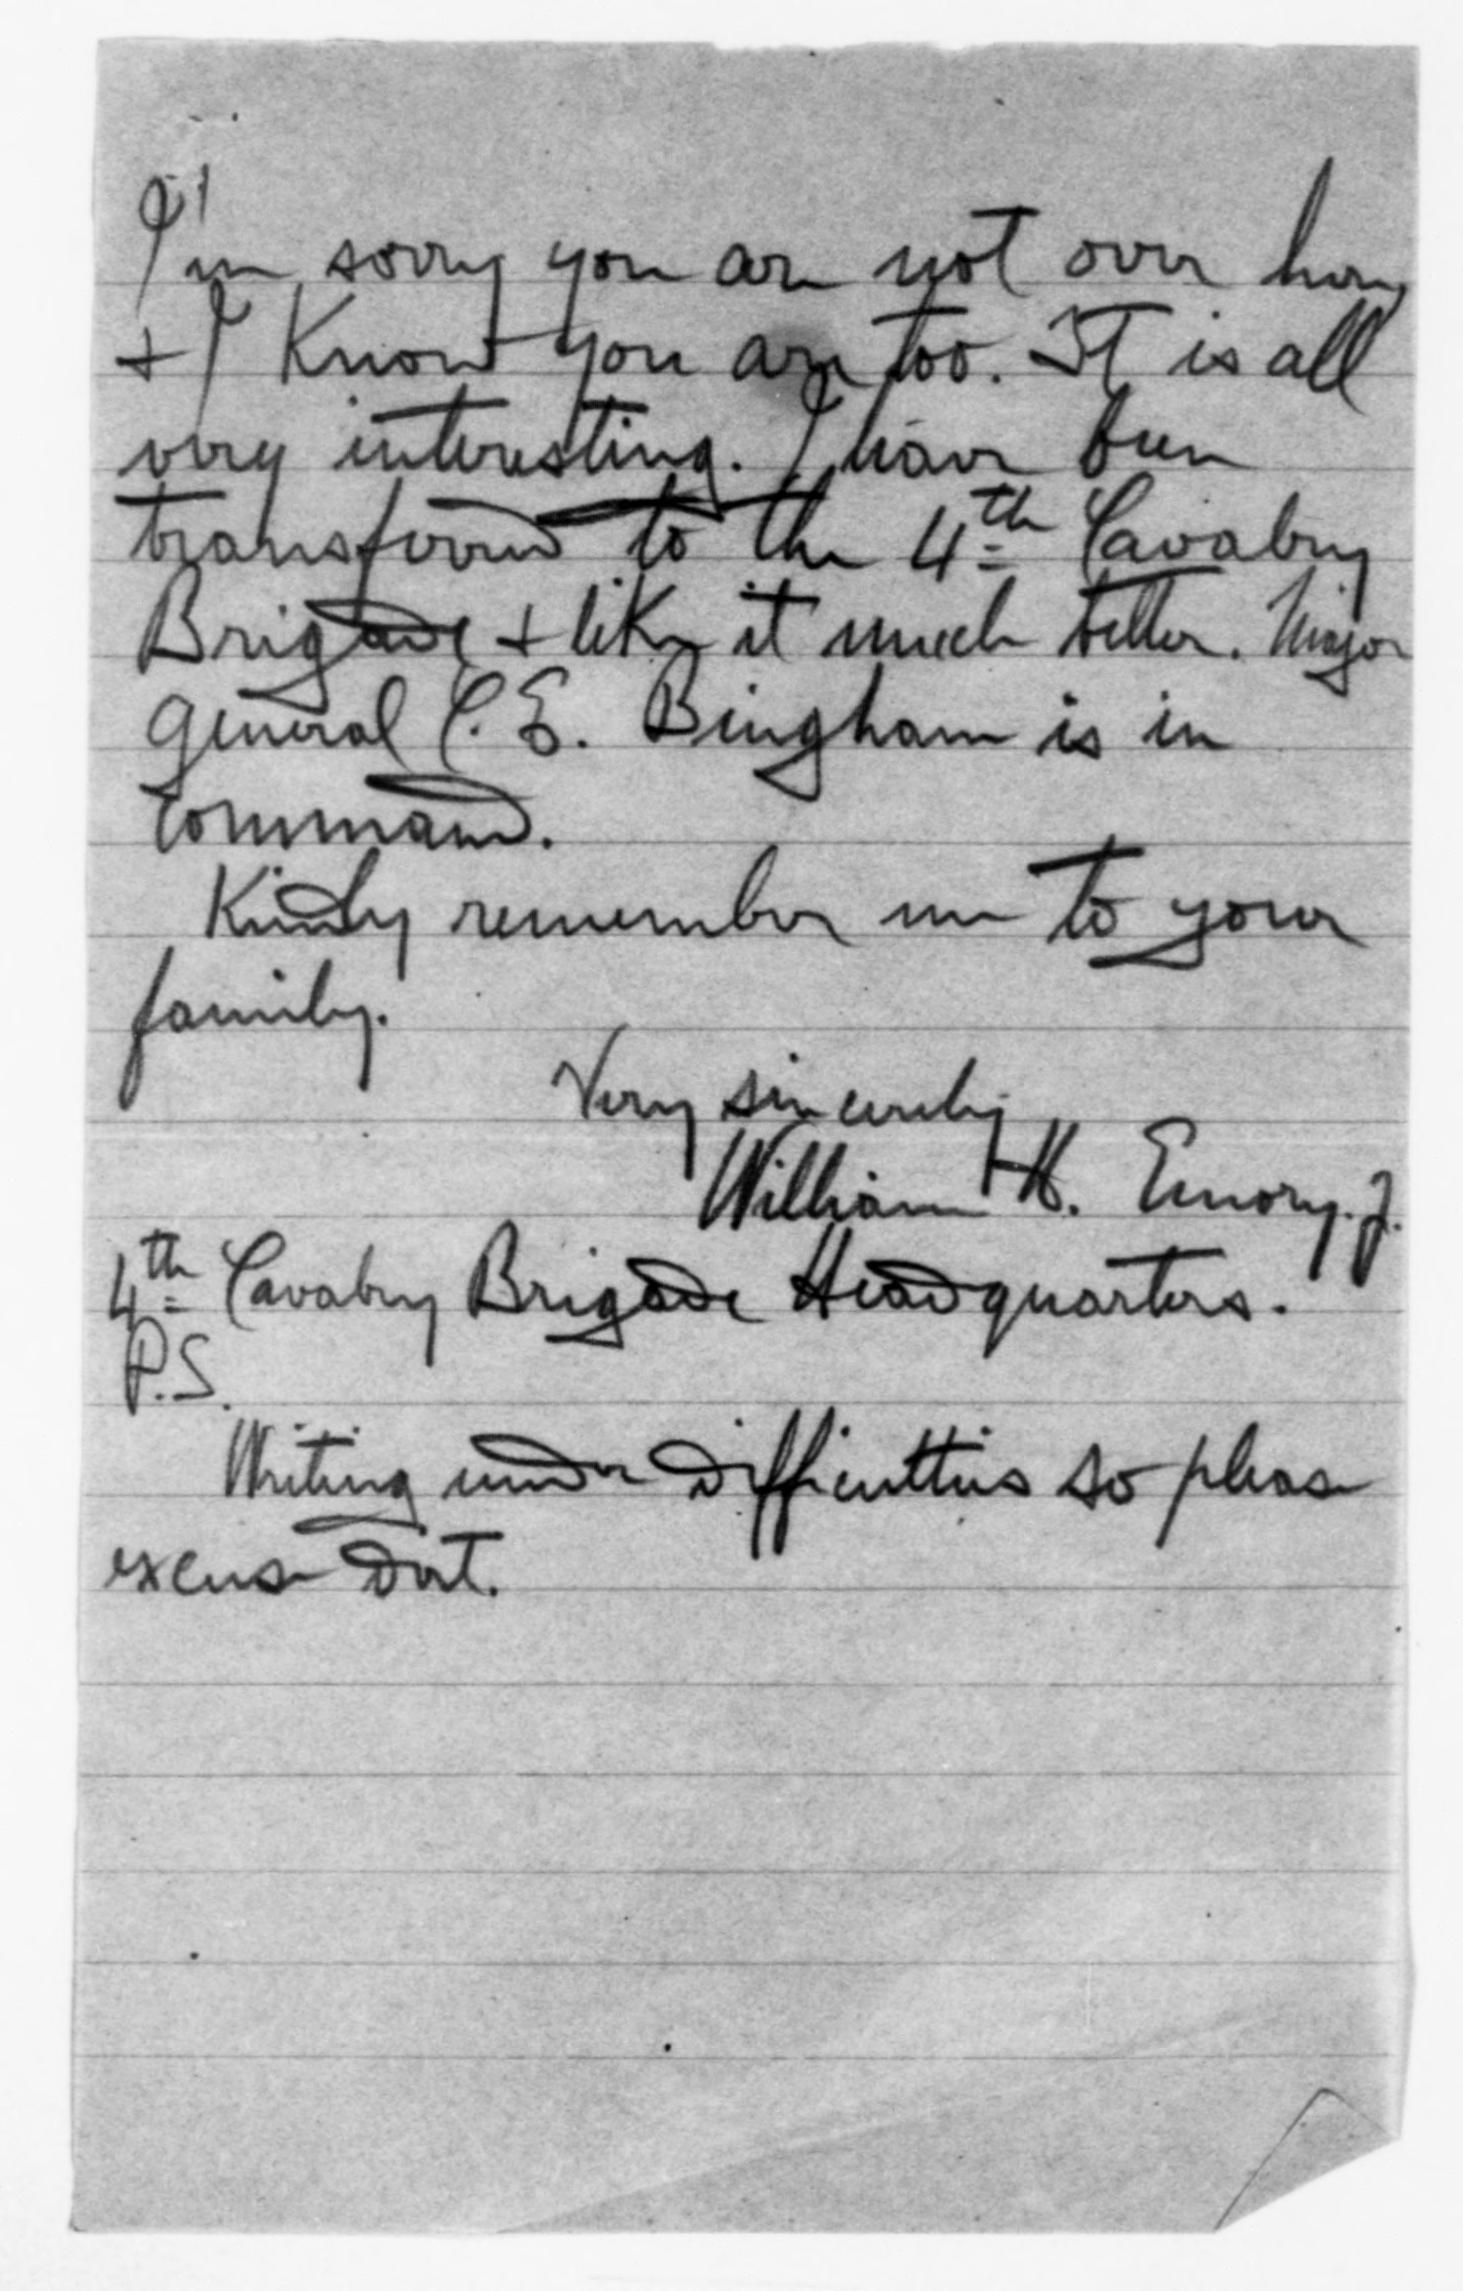 I'm sorry you are not over here
+ I Know you are too. IT is all
very interesting. I have been
transferred to the 4th Cavalry
Brigade + like it much better. Major
General C. E. Bingham is in
Command.
Kindly remember me to your
family.
Very sincerely
William H. Emory. J.
4th Cavalry Brigade Headquarters.
P.S.
Writing under difficulties so please
excuse dirt.